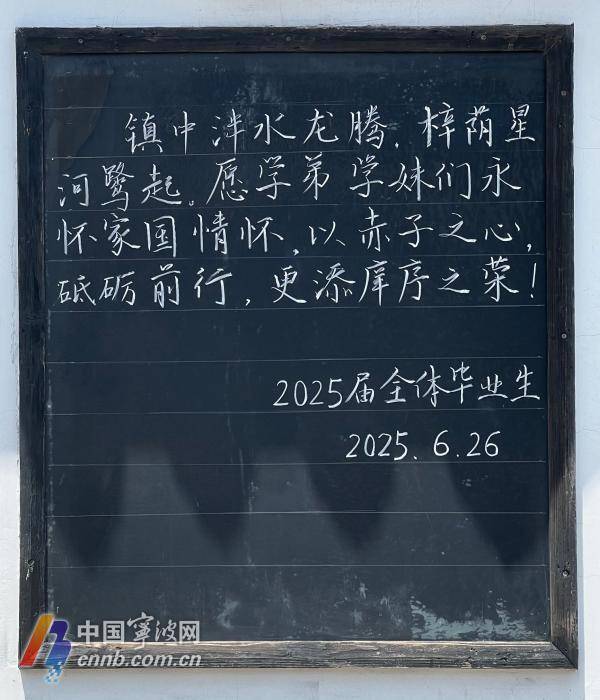 镇中泮水龙腾，梓荫星
河鹭起。愿学弟学妹们永
怀家国情怀，以赤子之心，
砥砺前行，更添庠序之荣！
2025届全体毕业生
2025.6.26
中国宁波网
cnnb.com.cn